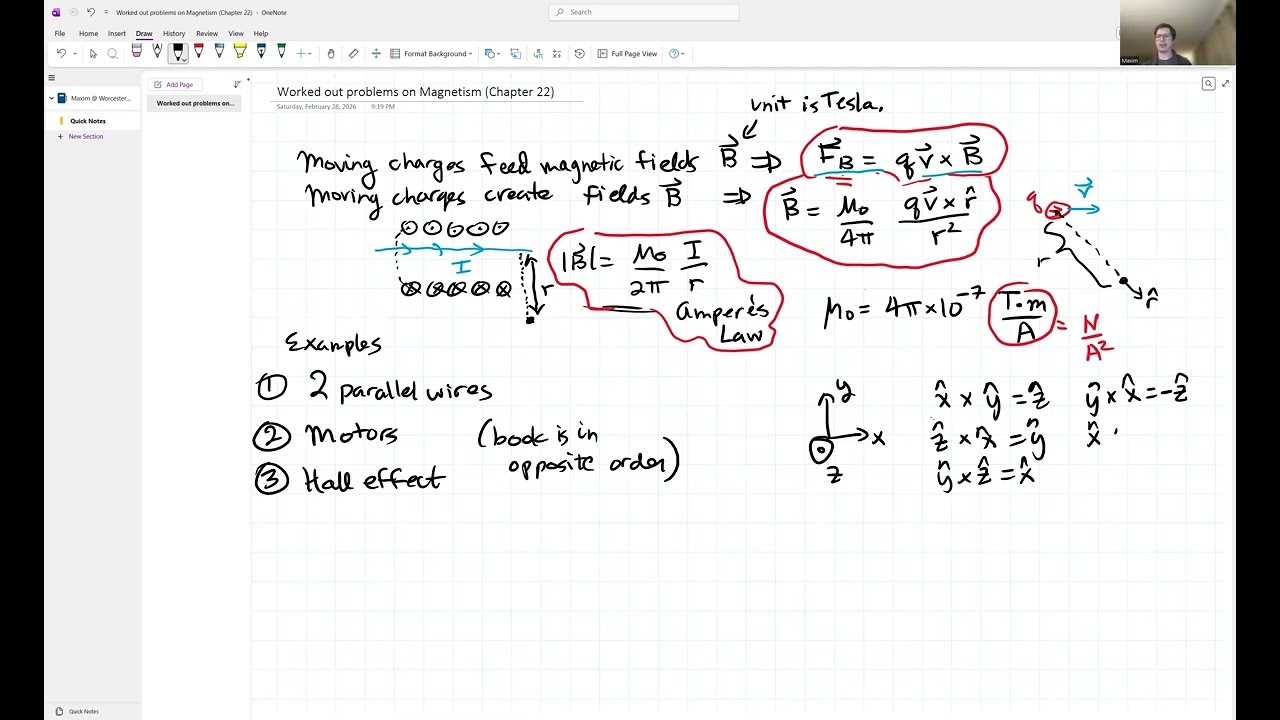 Worked out problems on Magnetism (Chapter 22) - OneNote
Search
File Home Insert Draw History Review View Help
Format Background
Full Page View
Maxim
Add Page
Maxim @ Worcester...
Worked out problems on...
Quick Notes
New Section
Worked out problems on Magnetism (Chapter 22)
Saturday, February 28, 2026 9:19 PM
unit is Tesla.
Moving charges feed magnetic fields B⃗ ⇒ F⃗_B = qv⃗ × B⃗
Moving charges create fields B⃗ ⇒ B⃗ = μ₀/4π qv⃗ × r̂/r²
q v⃗
r r̂
I r
|B⃗| = μ₀/2π I/r
Ampere's
Law
μ₀ = 4π×10⁻⁷ T·m/A = N/A²
Examples
① 2 parallel wires
② Motors (book is in
opposite order)
③ Hall effect
y
x
z
x̂ × ŷ = ẑ ŷ × x̂ = -ẑ
ẑ × x̂ = ŷ x̂
ŷ × ẑ = x̂
Quick Notes